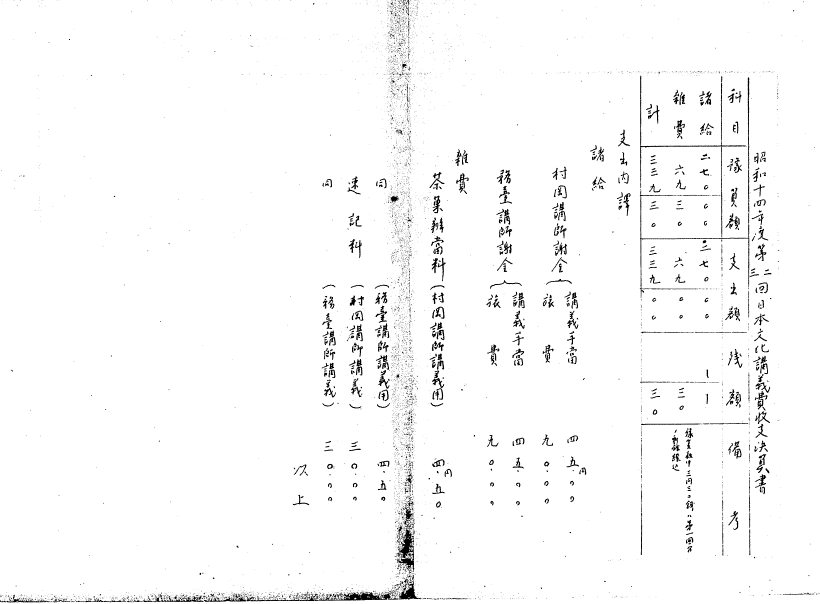 昭和十四年度第二三回日本文化講義費收支決算書
科目 豫算額 支出額 残額 備考
諸給 二七〇 〇〇 二七〇 〇〇 ー ー
雜費 六九 三〇 六九 〇〇 三〇
計 三三九 三〇 三三九 〇〇 三〇
豫算額中三円三〇錢ハ第一回分
支出内譯
諸給
村岡講師謝金 講義手當 四五円〇〇
旅費 九〇〇〇
務臺講師謝金 講義手當 四五〇〇
旅費 九〇〇〇
雜費
茶菓辨當料(村岡講師講義用) 四円五〇
同(務臺講師講義用) 四五〇
速記料(村岡講師講義) 三〇〇〇
同(務臺講師講義) 三〇〇〇
以上